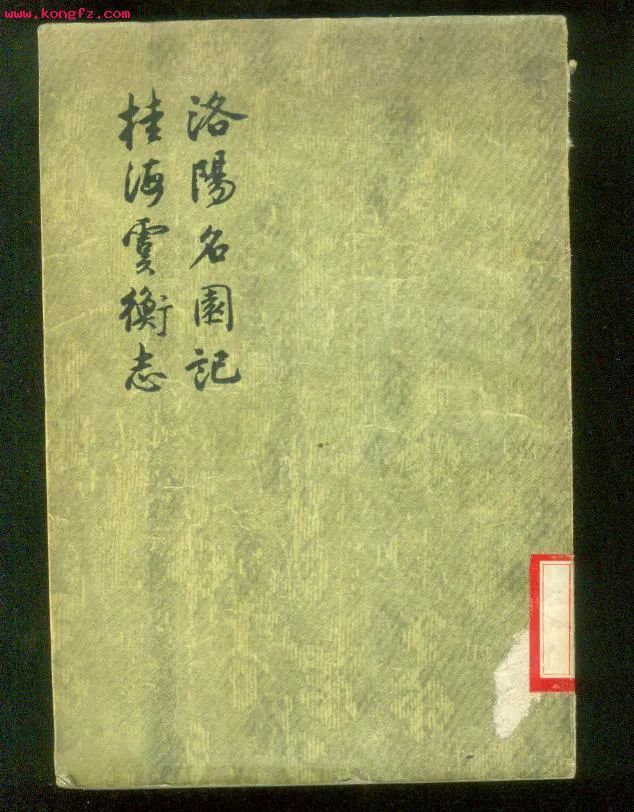 www.kongfz.com
洛陽名園記
桂海虞衡志